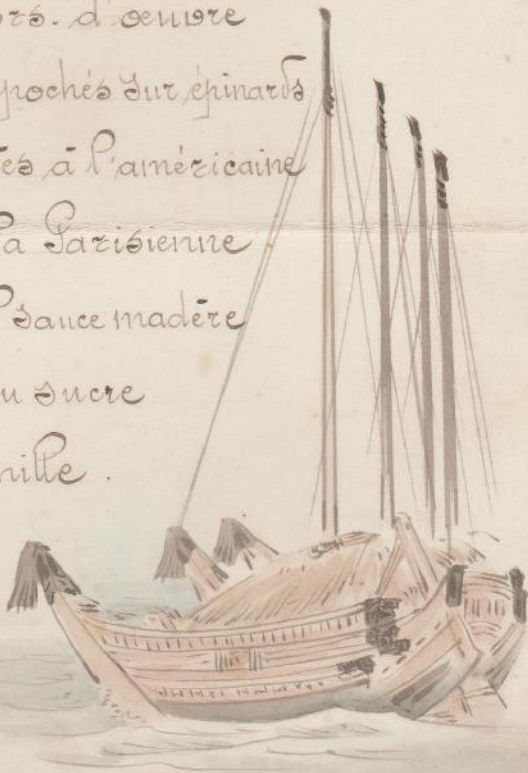 ors. d'œuvre
pochés sur épinards
es à l'américaine
la Parisienne
sauce madère
au sucre
nille.